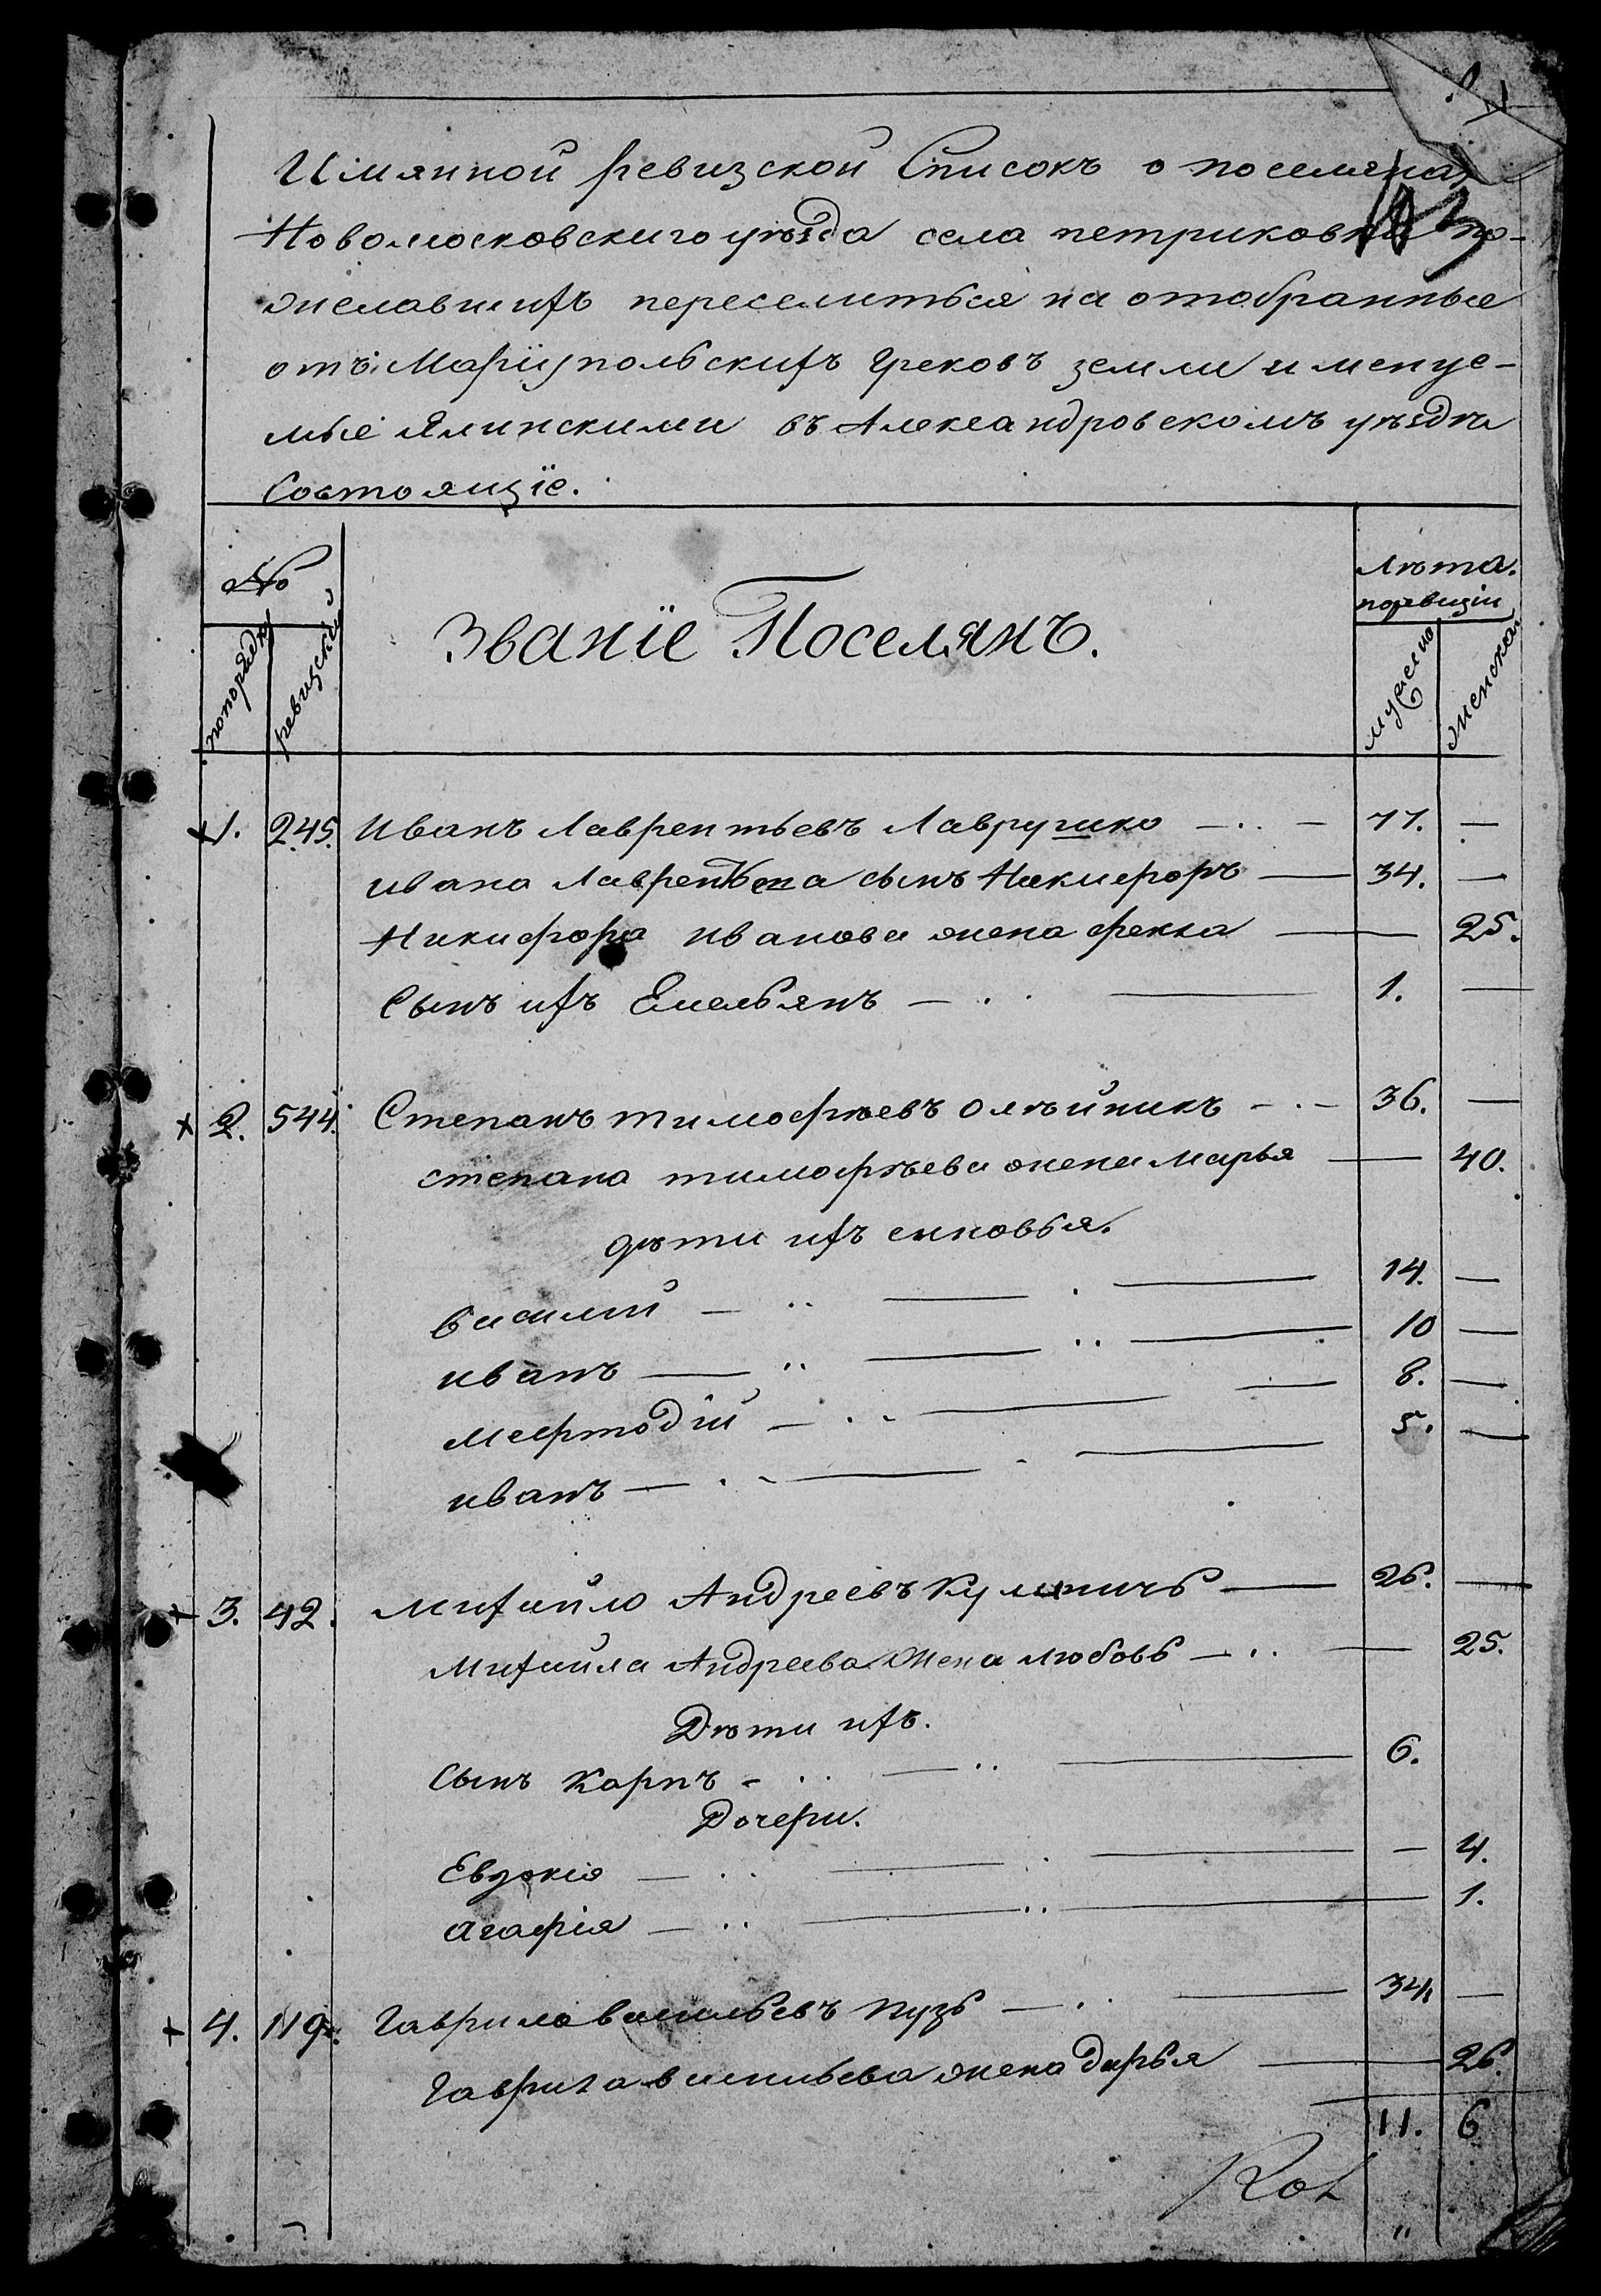 Имянной ревизской Списокъ о поселянах
Новомосковскиго уѣзда села петриковки по-
желавшихъ переселиться на отобранные
отъ Марїупольскихъ Грековъ земли именуе-
мые Ялинскими въ Александровскомъ уѣздѣ
Состоящїе.
№
Лѣта.
поревизіи
попорядку
ревизскій
Званїе Поселянъ.
мужеско
женской
1. 245. Иванъ Лаврентьевъ Лаврушко 77. —
ивана Лаврентьева сынъ Никифоръ — 34. —
Никифора иванова жена фекла — 25.
Сынъ ихъ Емельянъ — 1. —
2. 544. Степанъ тимофѣевъ олѣйникъ — 36. —
степана тимофѣева жена марья — 40.
дѣти ихъ сыновья.
василій — 14. —
иванъ — 10 —
мефтодій — 8. —
иванъ — 5. —
3. 42. михайло Андреевъ Кулиничь — 26. —
Михайла Андреева Жена любовь — 25.
Дѣти ихъ.
Сынъ Карпъ — 6.
Дочери.
Евдокія — 4.
агафія — 1.
4. 119. Гаврило васильевъ пузь — 34. —
Гаврила васильева жена дарья — 26.
11. 6